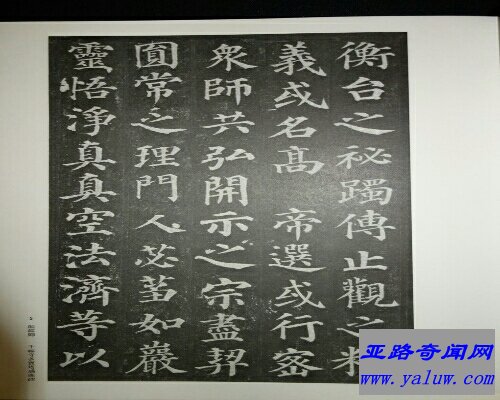 衡台之祕躅傳止觀之精
義或名高 帝選或行密
衆師共弘開示之宗盡契
圓常之理門人苾蒭如巖
靈悟淨真真空法濟等以
亚路奇闻网
www.yaluw.com